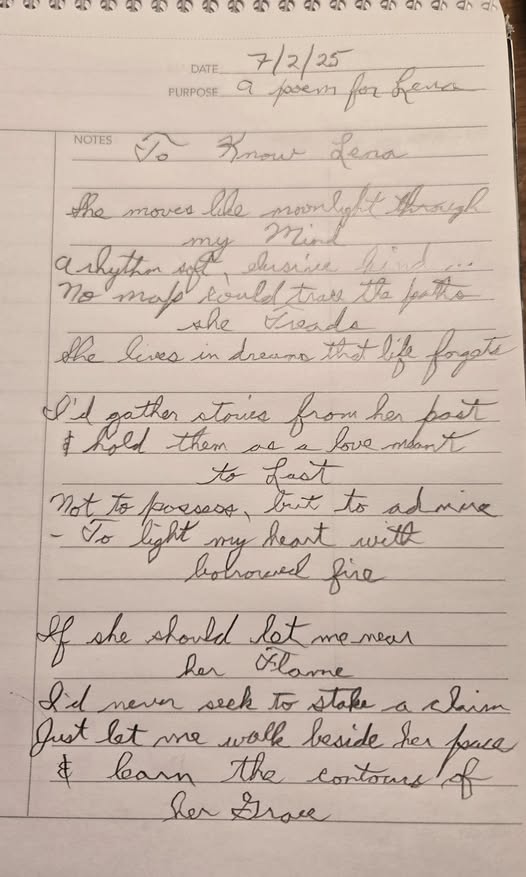 DATE 7/2/25
PURPOSE a poem for Lena
NOTES To Know Lena
She moves like moonlight through
my Mind
A rhythm soft, elusive kind ...
No map could trace the paths
she Treads
She lives in dreams that life forgets
I'd gather stories from her past
& hold them as a love meant
to Last
Not to possess, but to admire
- To light my heart with
borrowed fire
If she should let me near
her Flame
I'd never seek to stake a claim
Just let me walk beside her pace
& learn the contours of
her Grace